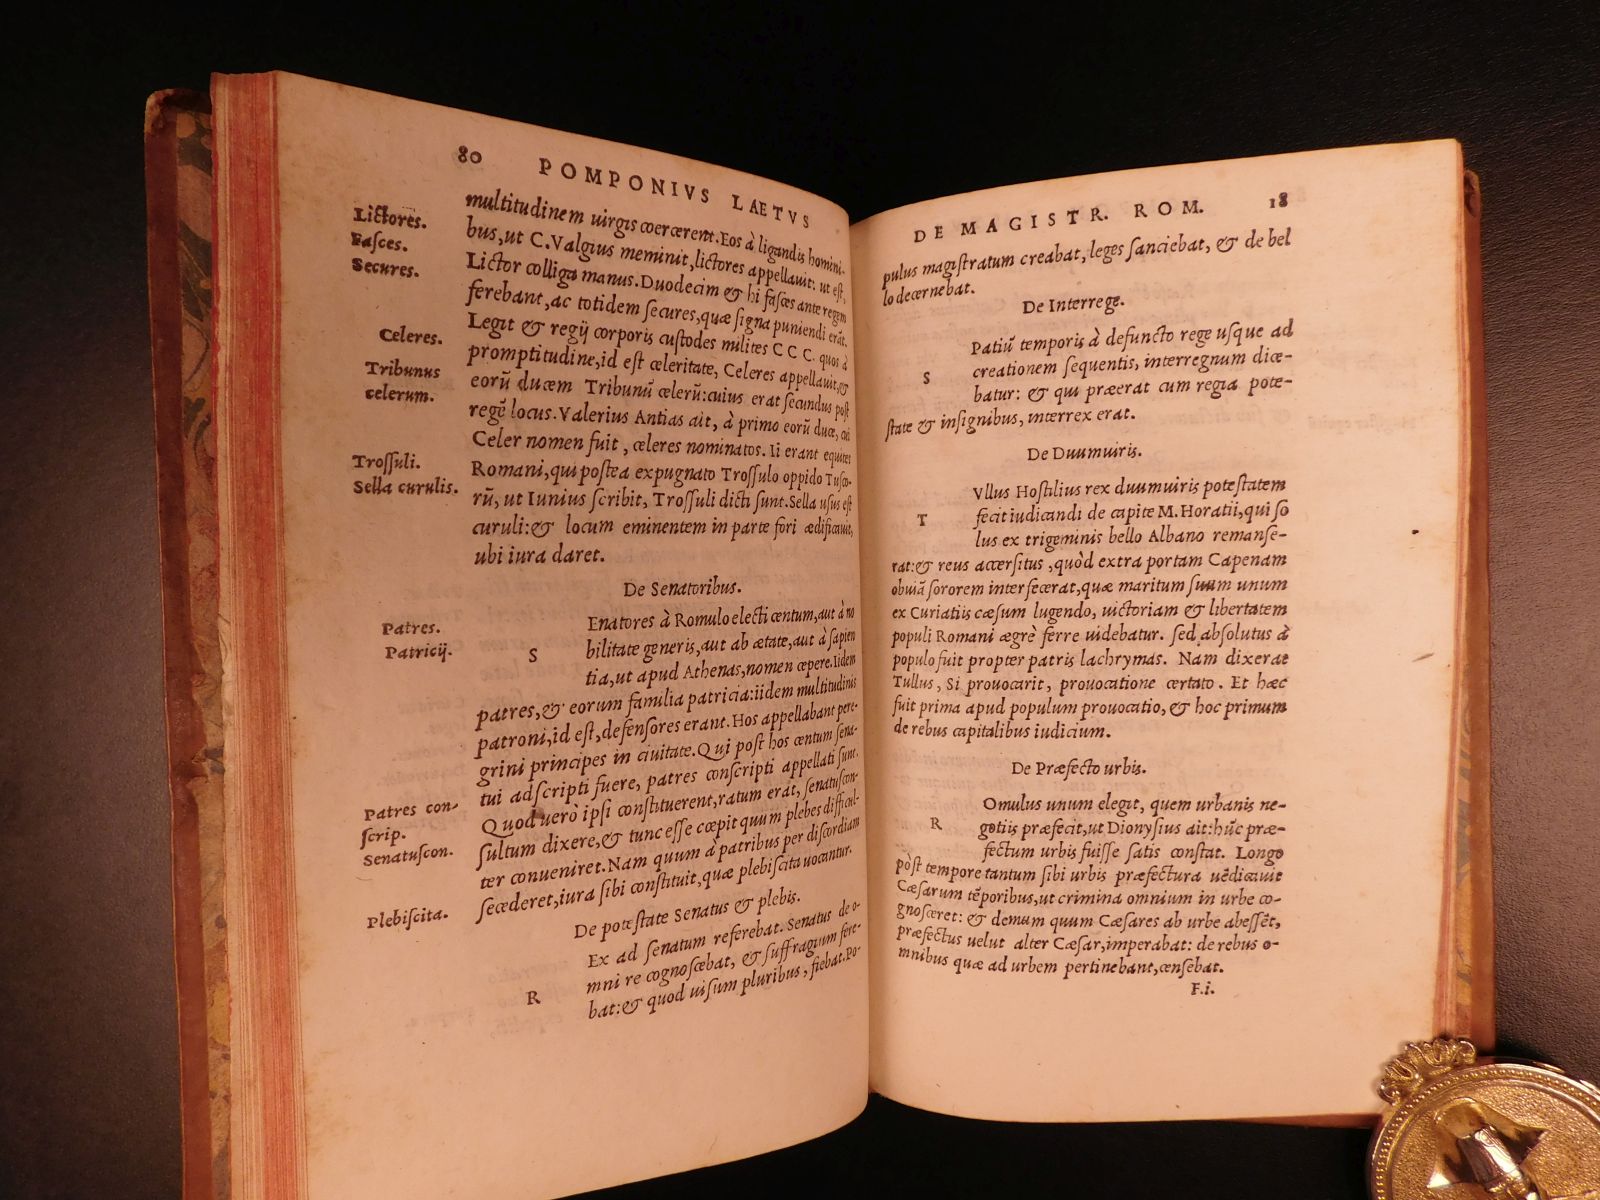 80 POMPONIVS LAETVS
Lictores.
Fasces.
Secures.
Celeres.
Tribunus
celerum.
Trossuli.
Sella curulis.
Patres.
Patricij.
Patres con-
scrip.
Senatuscon.
Plebiscita.
multitudinem uirgis coercerent. Eos à ligandis homini-
bus, ut C. Valgius meminit, lictores appellauit: ut est,
Lictor colliga manus. Duodecim & hi fasces ante regem
ferebant, ac totidem secures, quæ signa puniendi erāt.
Legit & regij corporis custodes milites C C C. quos à
promptitudine, id est celeritate, Celeres appellauit, &
eorū ducem Tribunū celerū: cuius erat secundus post
regē locus. Valerius Antias ait, à primo eorū duce, cui
Celer nomen fuit, celeres nominatos. Ii erant equites
Romani, qui postea expugnato Trossulo oppido Tusco-
rū, ut Iunius scribit, Trossuli dicti sunt. Sella usus est
curuli: & locum eminentem in parte fori ædificauit,
ubi iura daret.
De Senatoribus.
S Enatores à Romulo electi centum, aut à no
bilitate generis, aut ab ætate, aut à sapien
tia, ut apud Athenas, nomen cepere. Iidem
patres, & eorum familia patricia: iidem multitudinis
patroni, id est, defensores erant. Hos appellabant pere-
grini principes in ciuitate. Qui post hos centum sena-
tui adscripti fuere, patres conscripti appellati sunt.
Quod uerò ipsi constituerent, ratum erat, senatuscon-
sultum dixere, & tunc esse cœpit quum plebes difficul-
ter conueniret. Nam quum à patribus per discordiam
secederet, iura sibi constituit, quæ plebiscita uocantur.
De potestate Senatus & plebis.
R Ex ad senatum referebat. Senatus de o-
mni re cognoscebat, & suffragium fere-
bat: & quod uisum pluribus, fiebat. Po-
DE MAGISTR. ROM. 18
pulus magistratum creabat, leges sanciebat, & de bel
lo decernebat.
De Interrege.
S Patiū temporis à defuncto rege usque ad
creationem sequentis, interregnum dice-
batur: & qui præerat cum regia pote-
state & insignibus, interrex erat.
De Duumuiris.
T Vllus Hostilius rex duumuiris potestatem
fecit iudicandi de capite M. Horatii, qui so
lus ex trigeminis bello Albano remanse-
rat: & reus accersitus, quòd extra portam Capenam
obuiā sororem interfecerat, quæ maritum suum unum
ex Curiatiis cæsum lugendo, uictoriam & libertatem
populi Romani ægrè ferre uidebatur. sed absolutus à
populo fuit propter patris lachrymas. Nam dixerat
Tullus, Si prouocarit, prouocatione certato. Et hæc
fuit prima apud populum prouocatio, & hoc primum
de rebus capitalibus iudicium.
De Præfecto urbis.
R Omulus unum elegit, quem urbanis ne-
gotiis præfecit, ut Dionysius ait: hūc præ-
fectum urbis fuisse satis constat. Longo
post tempore tantum sibi urbis præfectura uēdicauit
Cæsarum tēporibus, ut crimina omnium in urbe co-
gnosceret: & demum quum Cæsares ab urbe abessēt,
præfectus uelut alter Cæsar, imperabat: de rebus o-
mnibus quæ ad urbem pertinebant, censebat.
F.i.